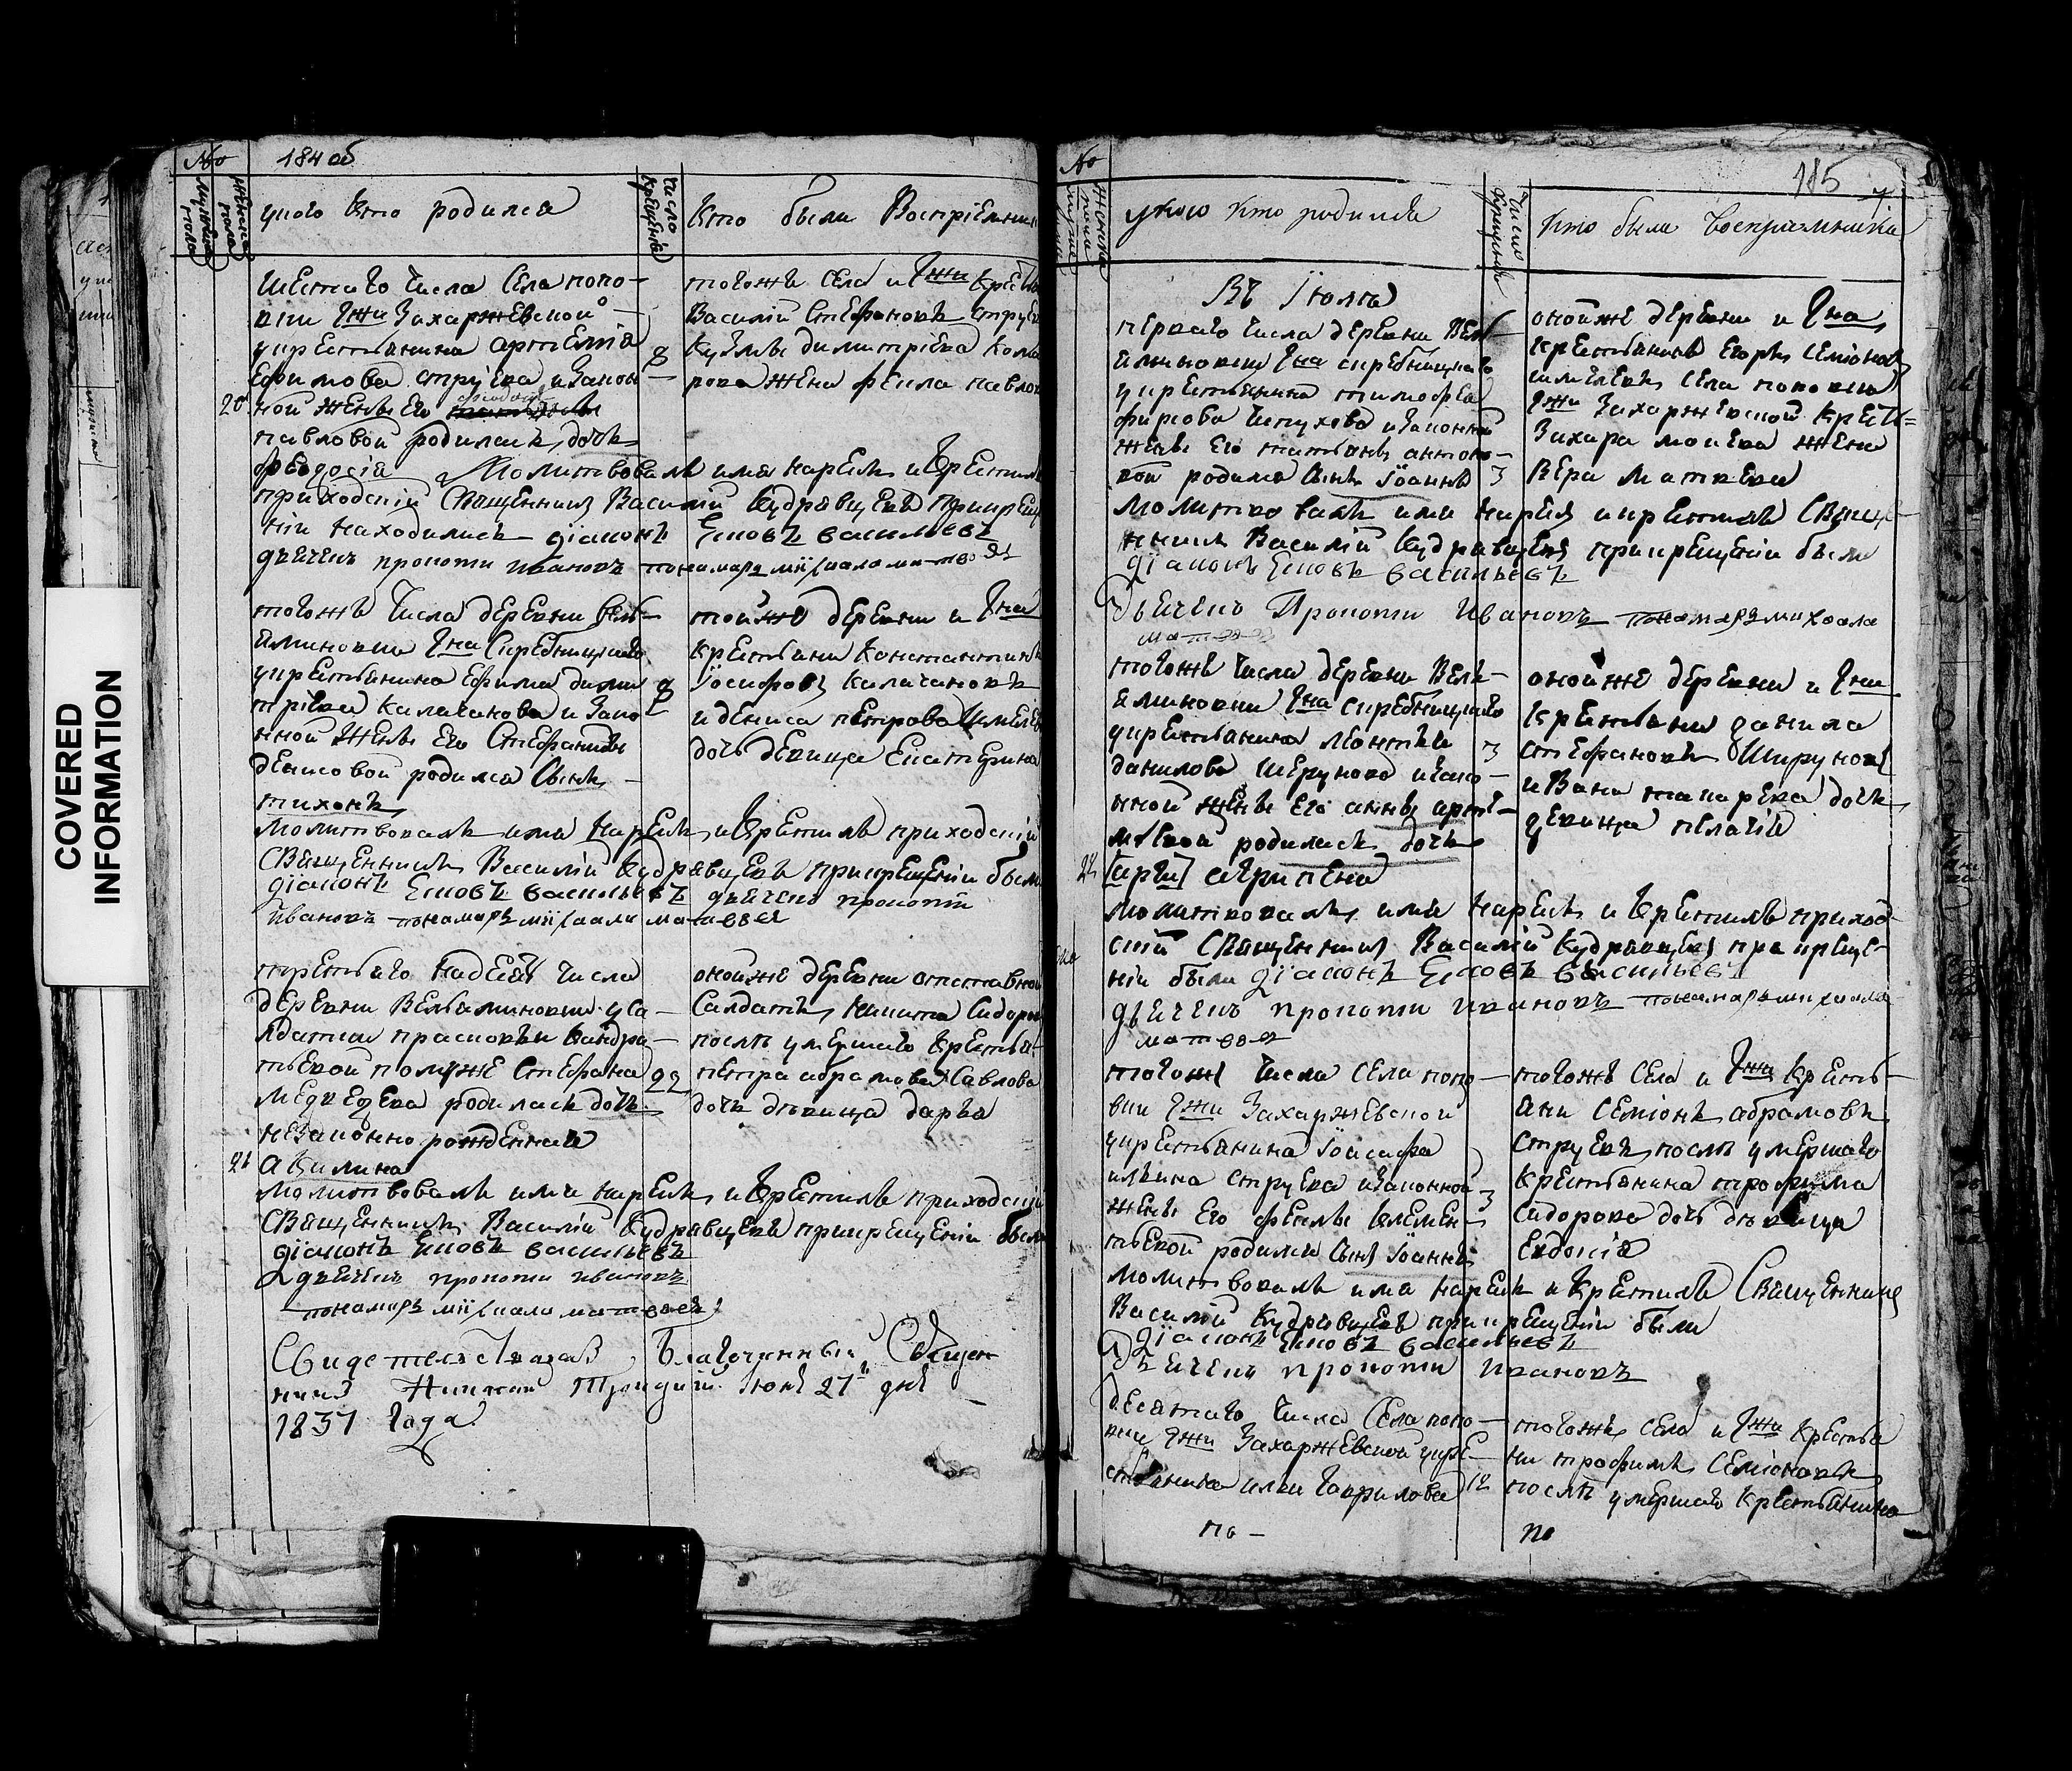 COVERED
INFORMATION
№
184 об
Мужска пола
Женска пола
у кого кто родился
Число крещенія
кто были Воспріемни
шестаго числа села попо-
вки Гжи Захаржевской
у крестьянина Артемія
Ефимова Струева и закон
20
ной жены его
Феодосіи
Павловой родилась дочь
Феодосія
8
тогожъ села и Гжи крестья
Василій Стефановъ Струев
Кузьмы Димитріева Кома
рова жена Фекла Павлов
Молитвовалъ имя нарекъ и крестилъ
приходскій священникъ Василій Кудрявцевъ при креще
ніи находились діаконъ Еновъ Васильевъ
дьячекъ Прокопи Ивановъ понамарь Михаала Матвеев
тогожъ числа деревни Вель-
яминовки Гна Скребницкаго
у крестьянина Ефима Дими
тріева Калачанова и зако
нной жены его Стефаниды
Денисовой родился сынъ
Тихонъ
8
тойже деревни и Гна
крестьяни Константинъ
Іосифовъ Калачановъ
и Дениса Петрова Шмелев
дочь девица Екатерина
Молитвовалъ имя нарекъ и крестилъ приходскій
священникъ Василій Кудрявцевъ при крещеніи были
діаконъ Еновъ Васильевъ дьячекъ Прокопи
Ивановъ понамарь Михаала Матвеев
третьяго надесять числа
деревни Вельяминовки у са-
лдатки Прасковьи Кандра-
тьевой по муже Стефана
Медведева родилась дочь
незаконно рожденная
21
Акилина
22
онойже деревни отставной
салдатъ Никита Сидоров
послѣ умершаго крестья-
Петра Абрамова Савлова
дочь дѣвица Дарья
Молитвовалъ имя нарекъ и крестилъ приходскій
священникъ Василій Кудрявцевъ при крещеніи были
діаконъ Еновъ Васильевъ
дьячекъ Прокопи Ивановъ
понамарь Михаала Матвеев
Свидетельствовалъ Благочинный Священ
никъ Троицкій Іюня 27 дня
1837 года
№
185
Женска пола
у кого кто родился
Число крещенія
кто были воспріемники
Въ Іюлѣ
перваго числа деревни Вель
яминовки Гна Скребницкаго
у крестьянина Тимофея
Фирсова Чепухова и законной
жены его Татьяны Антоно-
вой родился сынъ Іоаннъ
3
онойже деревни и Гна
крестьянинъ Егоръ Семіоновъ
Шмелевъ села Поповки
Гжи Захаржевской крестья=
Захара Моисева жена
Вера Матвева
Молитвовалъ имя нарекъ и крестилъ свяще-
нникъ Василій Кудрявцевъ при крещеніи были
діаконъ Еновъ Васильевъ
дьячекъ Прокопи Ивановъ понамарь Михаала
Матвеев
тогожъ числа деревни Вель-
яминовки Гна Скребницкаго
у крестьянина Леонтія
Данилова Шерунова и зако-
нной жены его Анны Арте-
мьевой родилась дочь
22
Агрипена
3
онойже деревни и Гна
крестьяни Данила
Стефановъ Шируновъ
и Вана Токарева дочь
девица Пелагія
Молитвовалъ имя нарекъ и крестилъ приход-
скій священникъ Василій Кудрявцевъ при креще-
ніи были діаконъ Еновъ Васильевъ
дьячекъ Прокопи Ивановъ понамарь Михаала
Матвеев
тогожъ числа села Попо-
вки Гжи Захаржевской
у крестьянина Іосифа
Ильина Струева и законной
жены его Феклы Клемен-
тьевой родился сынъ Іоаннъ
3
тогожъ села и Гжи крестья-
яни Семіонъ Абрамовъ
Струевъ послѣ умершаго
крестьянина Трофима
Сидорова дочь дѣвица
Евдокія
Молитвовалъ имя нарекъ и крестилъ священникъ
Василій Кудрявцевъ при крещеніи были
діаконъ Еновъ Васильевъ
дьячекъ Прокопи Ивановъ
десятаго числа села Попо-
вки Гжи Захаржевской у кре-
стьянина Ильи Гаврилова
по-
12
тогожъ села и Гжи крестья
ни Трофимъ Семіоновъ
послѣ умершаго крестьянина
по